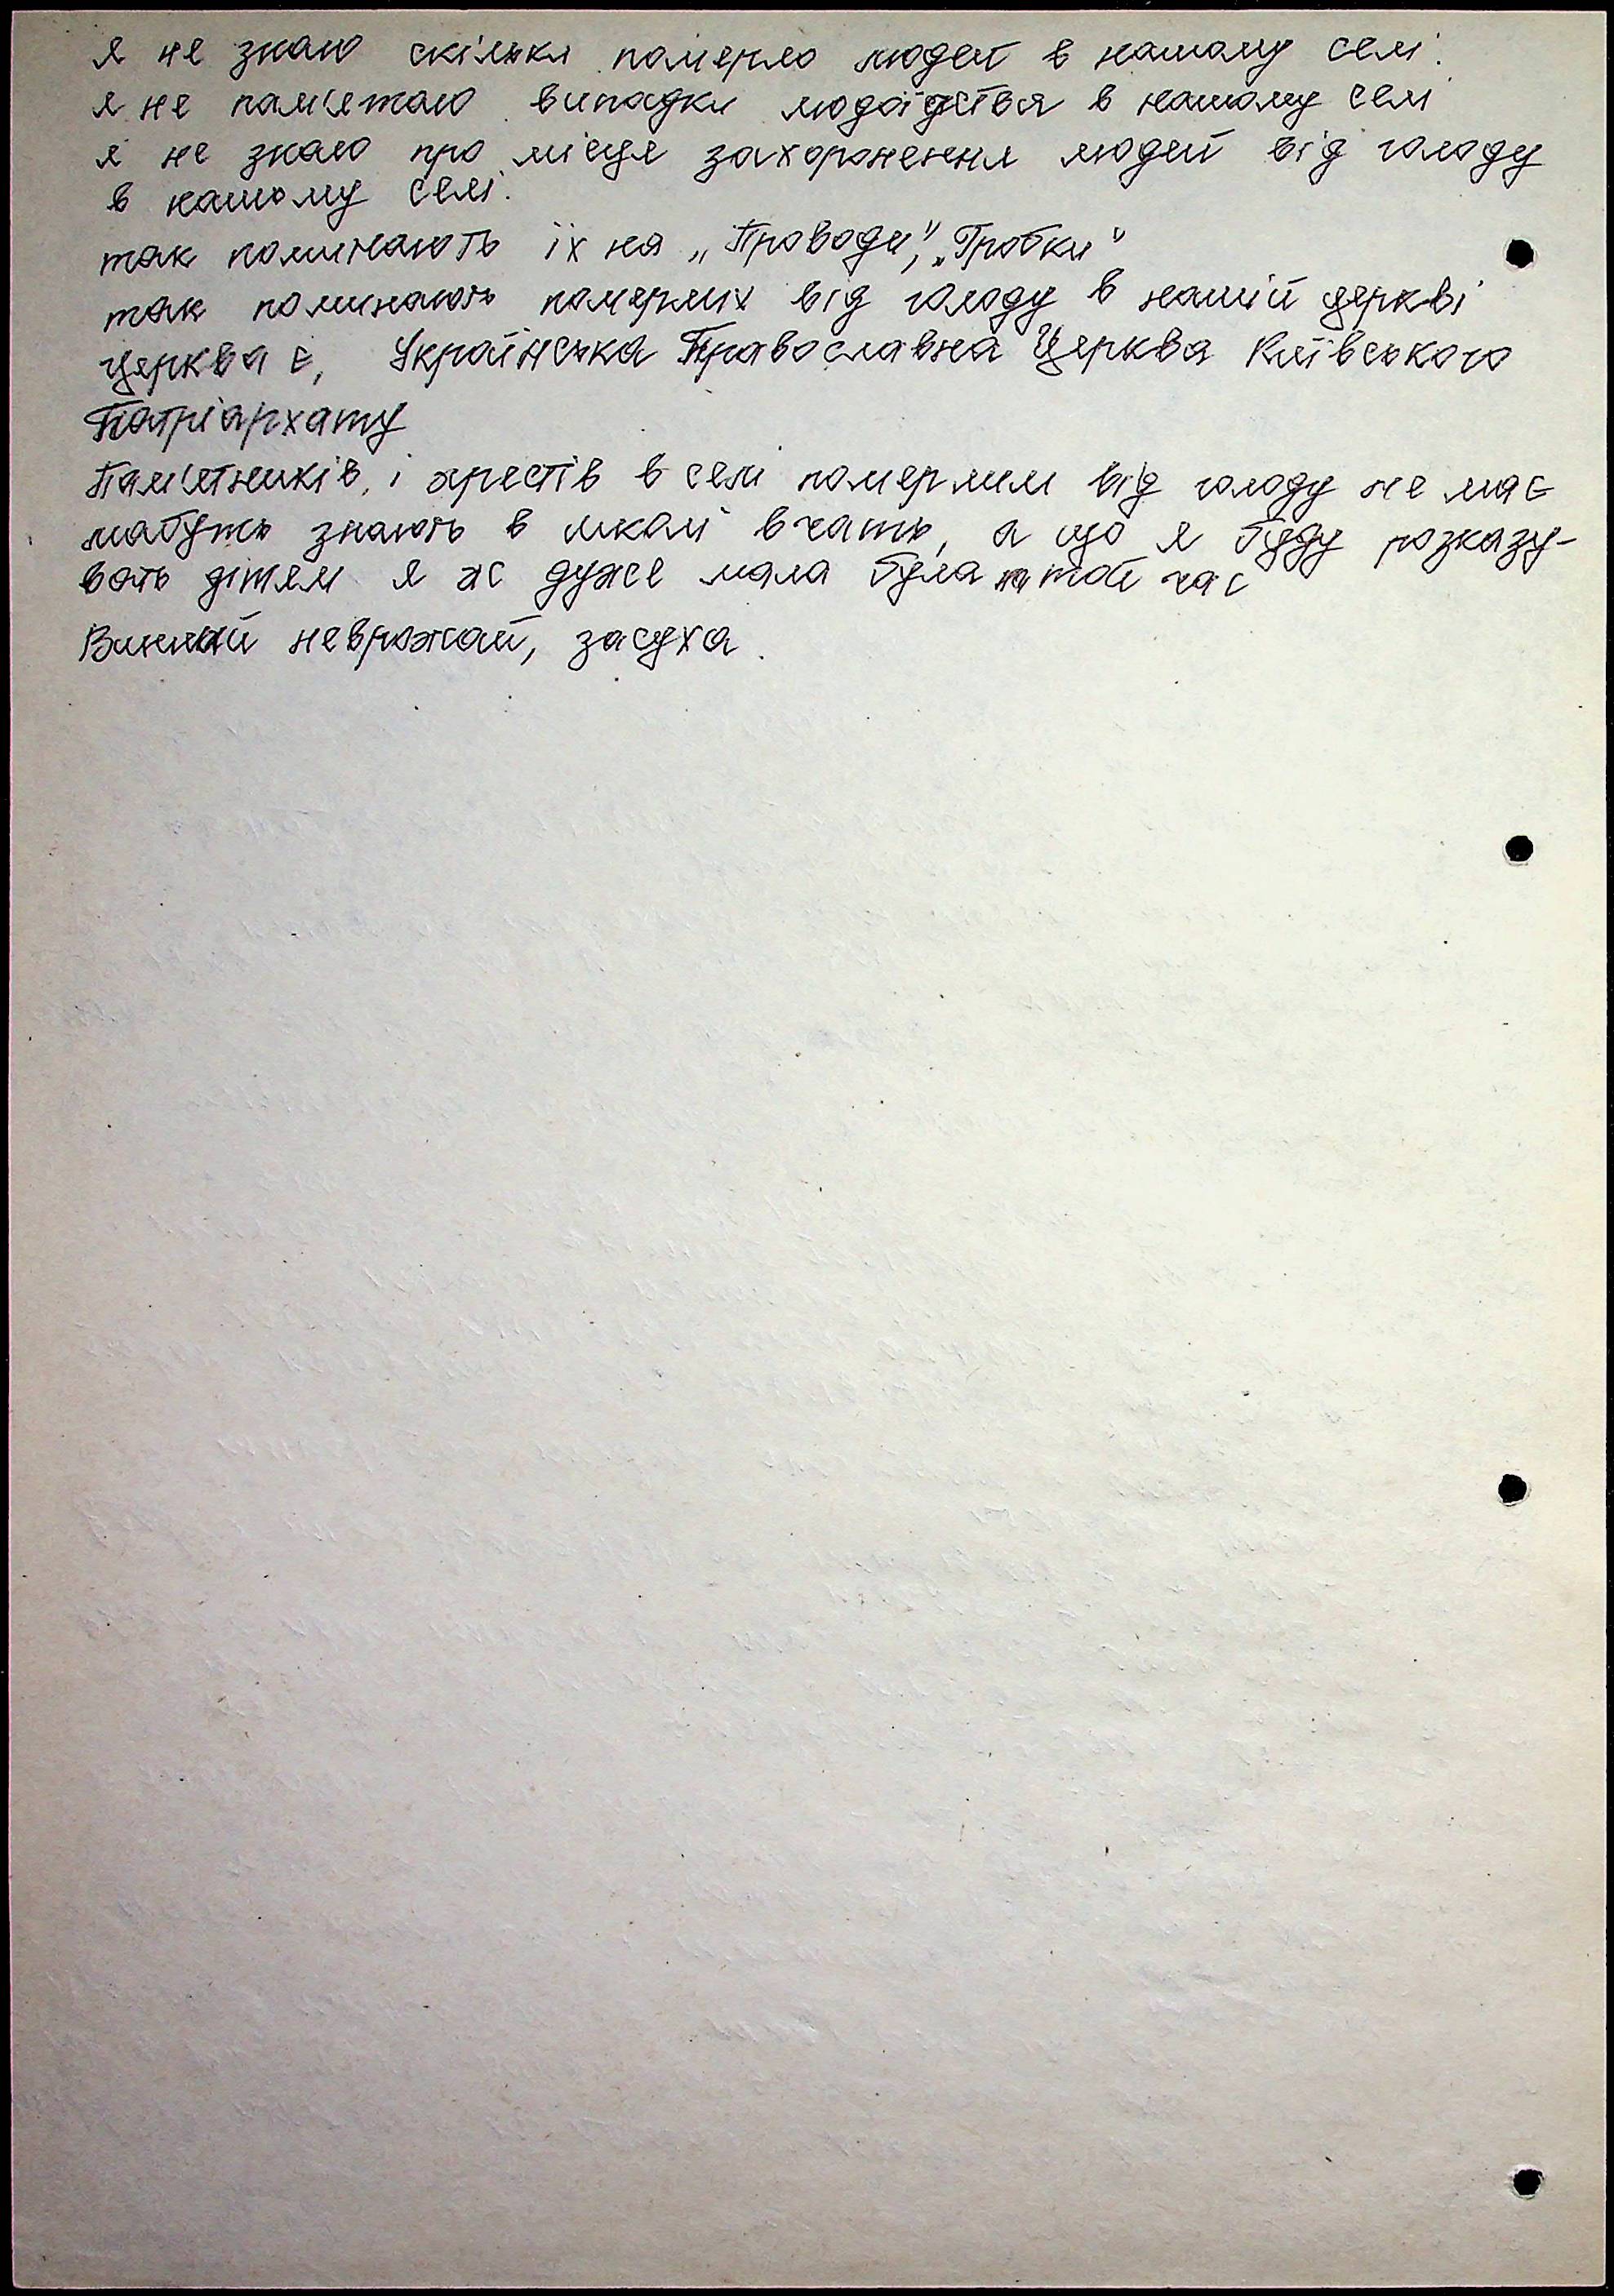 я не знаю скільки померло людей в нашому селі.
я не пам'ятаю випадки людоїдства в нашому селі
я не знаю про місця захоронення людей від голоду
в нашому селі.
так поминають їх на „Проводи", „Гробки"
так поминають померлих від голоду в нашій церкві
церква є, Українська Православна Церква Київського
Патріархату
Пам'ятників, і хрестів в селі померлим від голоду не має
мабуть знають в школі вчать, а що я буду розказу-
вать дітям я ж дуже мала була на той час
Винний неврожай, засуха.